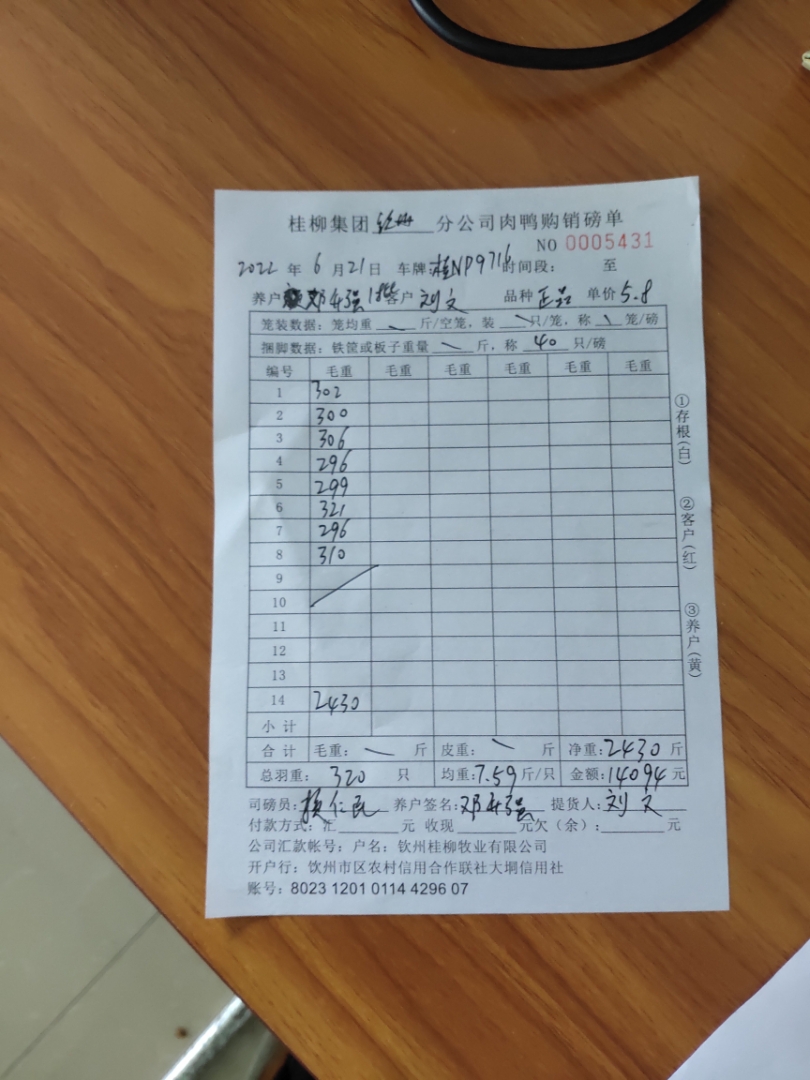 桂柳集团 钦州 分公司肉鸭购销磅单
NO 0005431
2022 年 6 月 21 日 车牌:桂NP9716 时间段: 至
养户 邓 强 客户 刘文 品种 正品 单价 5.8
笼装数据:笼均重 斤/空笼,装 只/笼,称 笼/磅
捆脚数据:铁筐或板子重量 斤,称 40 只/磅
编号 毛重 毛重 毛重 毛重 毛重 毛重
1 302
2 300
3 306
4 296
5 299
6 321
7 296
8 310
9
10
11
12
13
14 2430
小 计
合 计 毛重: 斤 皮重: 斤 净重:2430 斤
总羽重: 320 只 均重:7.59 斤/只 金额:14094 元
司磅员:杨仁民 养户签名:邓 强 提货人:刘文
付款方式:汇 元 收现 元欠(余): 元
公司汇款帐号:户名:钦州桂柳牧业有限公司
开户行:钦州市区农村信用合作联社大垌信用社
账号:8023 1201 0114 4296 07
①存根(白)
②客户(红)
③养户(黄)